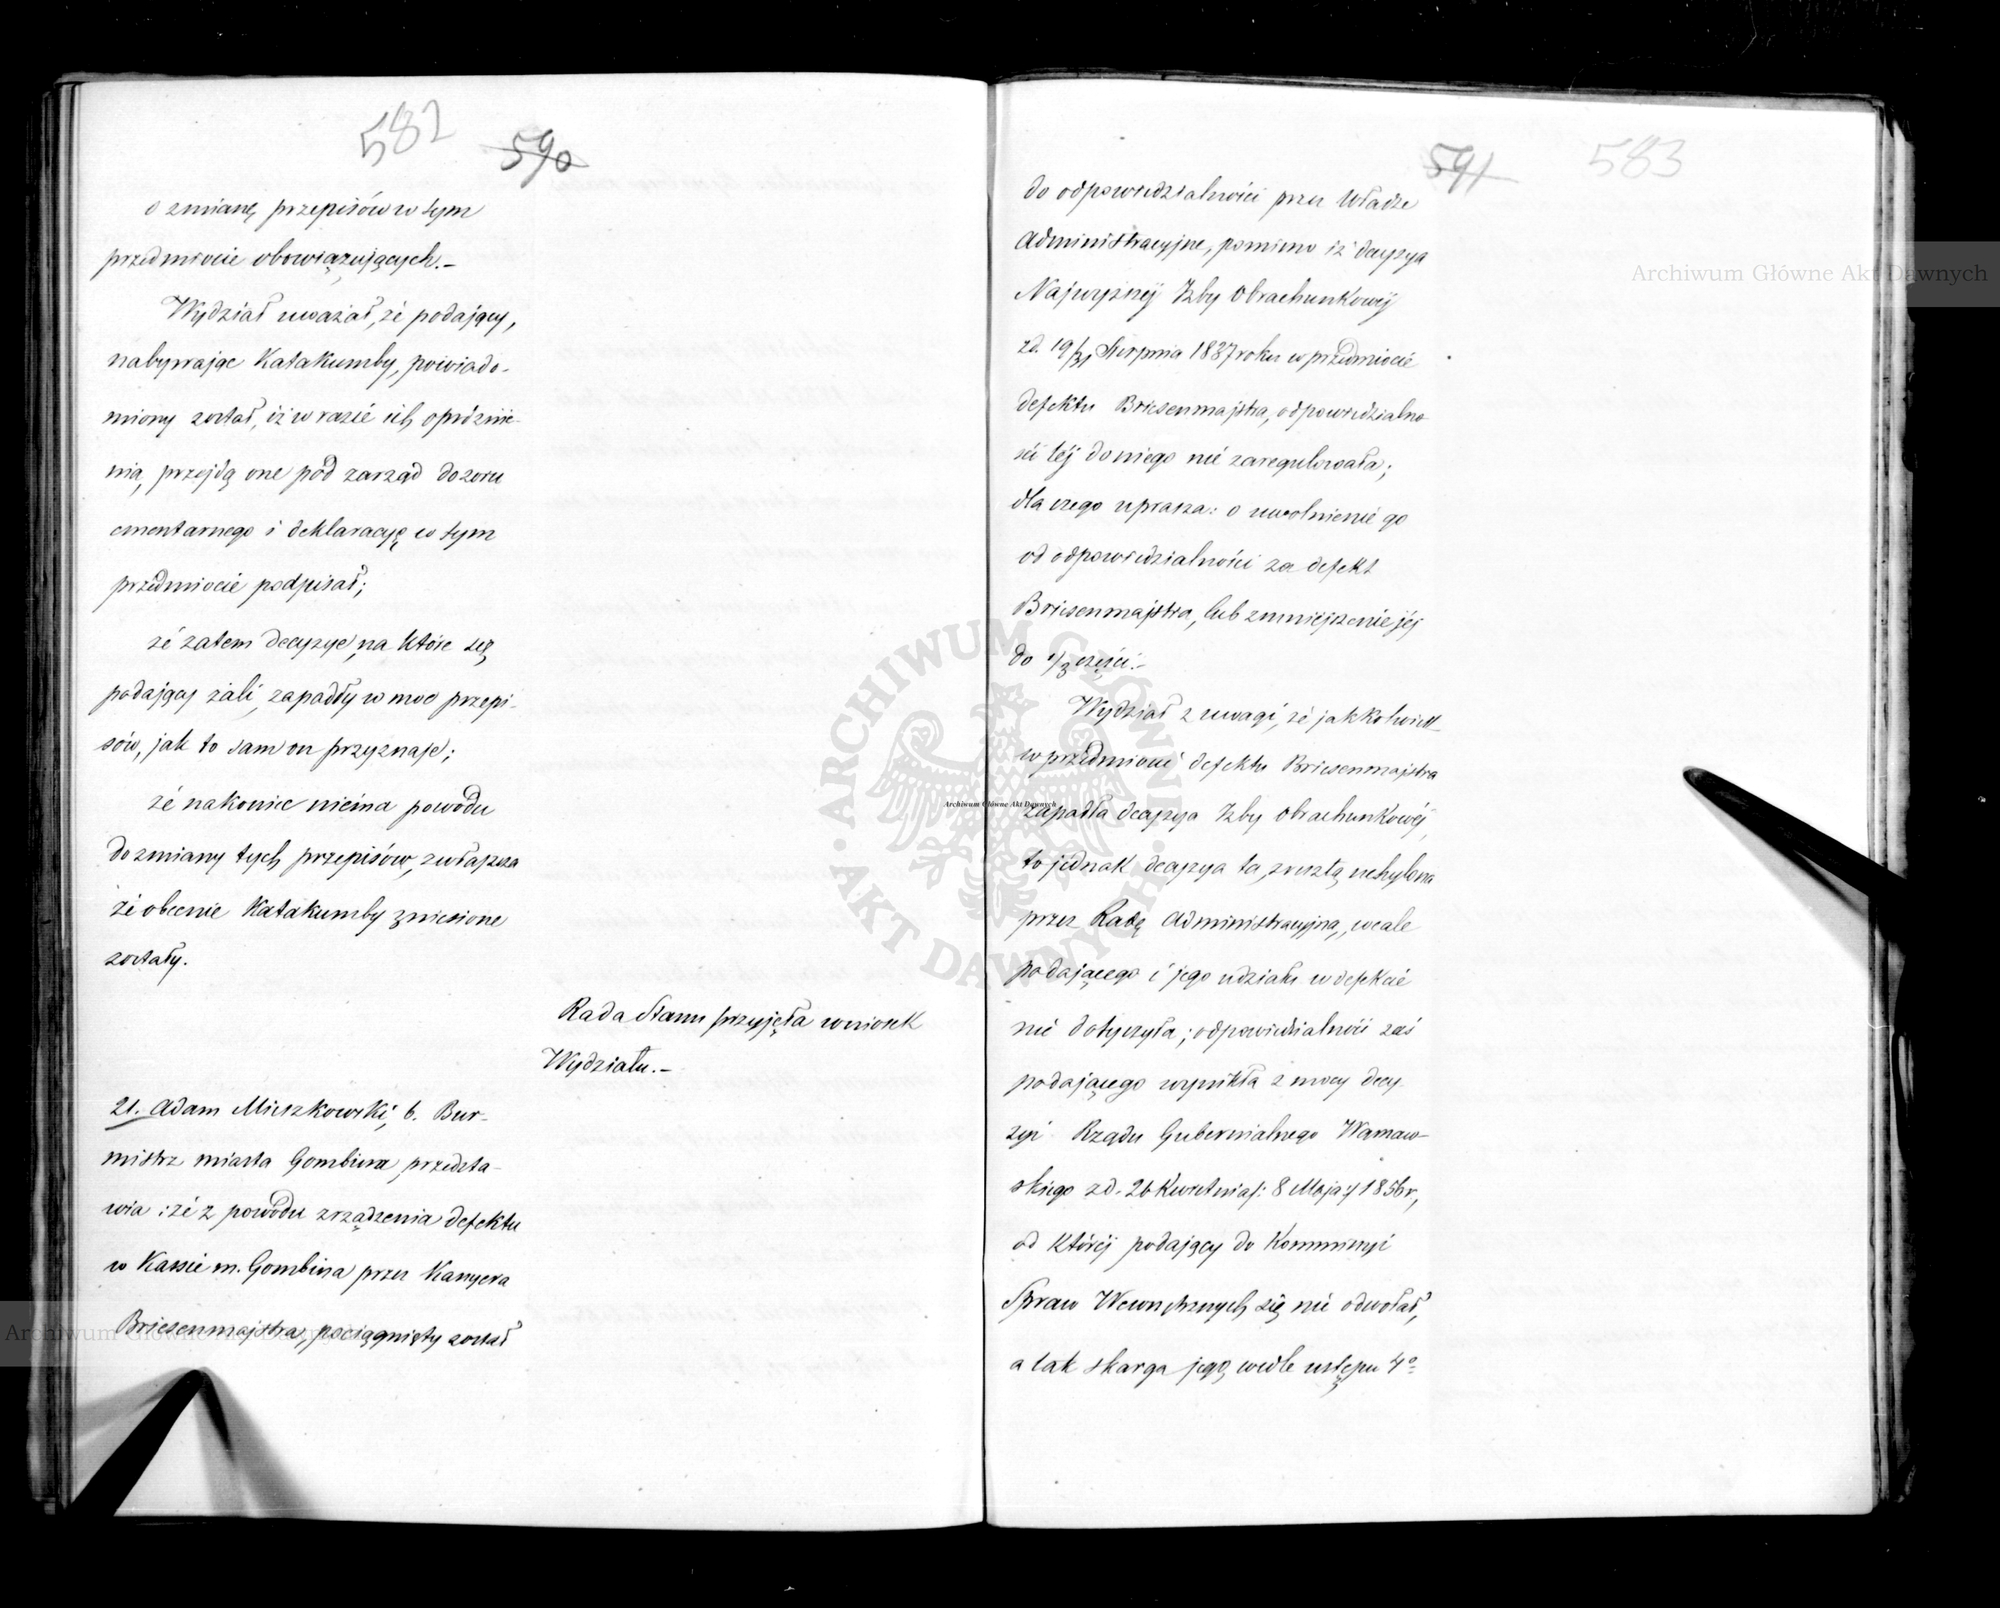 582 590
o zmianę przepisów w tym
przedmiocie obowiązujących.—
Wydział uważał, że podający,
nabywając Katakumby, powiado-
miony został, iż w razie ich opróżnie-
nia, przejdą one pod zarząd dozoru
cmentarnego i deklaracyę w tym
przedmiocie podpisał;
że zatem decyzye, na które się
podający żali, zapadły w moc przepi-
sów, jak to sam on przyznaje;
że nakoniec niéma powodu
do zmiany tych przepisów, zwłaszcza
że obecnie Katakumby zniesione
zostały.
Rada Stanu przyjęła wniosek
Wydziału.—
21. Adam Mieszkowski, b. Bur-
mistrz miasta Gombina, przedsta-
wia: że z powodu zrządzenia defektu
w Kassie m. Gombina przez Kassyera
Briesenmajstra, pociągnięty został
591 583
do odpowiedzialności przez Władze
Administracyjne, pomimo iż decyzya
Najwyższéj Izby Obrachunkowéj
z d. 19/31 Sierpnia 1837 roku w przedmiocie
defektu Briesenmajstra, odpowiedzialno
ści téj do niego nie zaregulowała;
dla czego uprasza: o uwolnienie go
od odpowiedzialności za defekt
Briesenmajstra, lub zmniejszenie jéj
do 1/3 części.—
Wydział z uwagi, że jakkolwiek
w przedmiocie defektu Briesenmajstra
zapadła decyzya Izby Obrachunkowéj,
to jednak decyzya ta, zresztą uchylona
przez Radę Administracyjną, wcale
podającego i jego udziału w defekcie
nie dotyczyła; odpowiedzialność zaś
podającego wynikła z mocy decy-
zyi Rządu Gubernialnego Warszaw-
skiego z d. 26 Kwietnia /: 8 Maja :/ 1856 r,
od któréj podający do Kommissyi
Spraw Wewnętrznych się nie odwołał,
a tak skarga jego, wedle ustępu 4º
Archiwum Główne Akt Dawnych
Archiwum Główne Akt Dawnych
ARCHIWUM GŁÓWNE AKT DAWNYCH